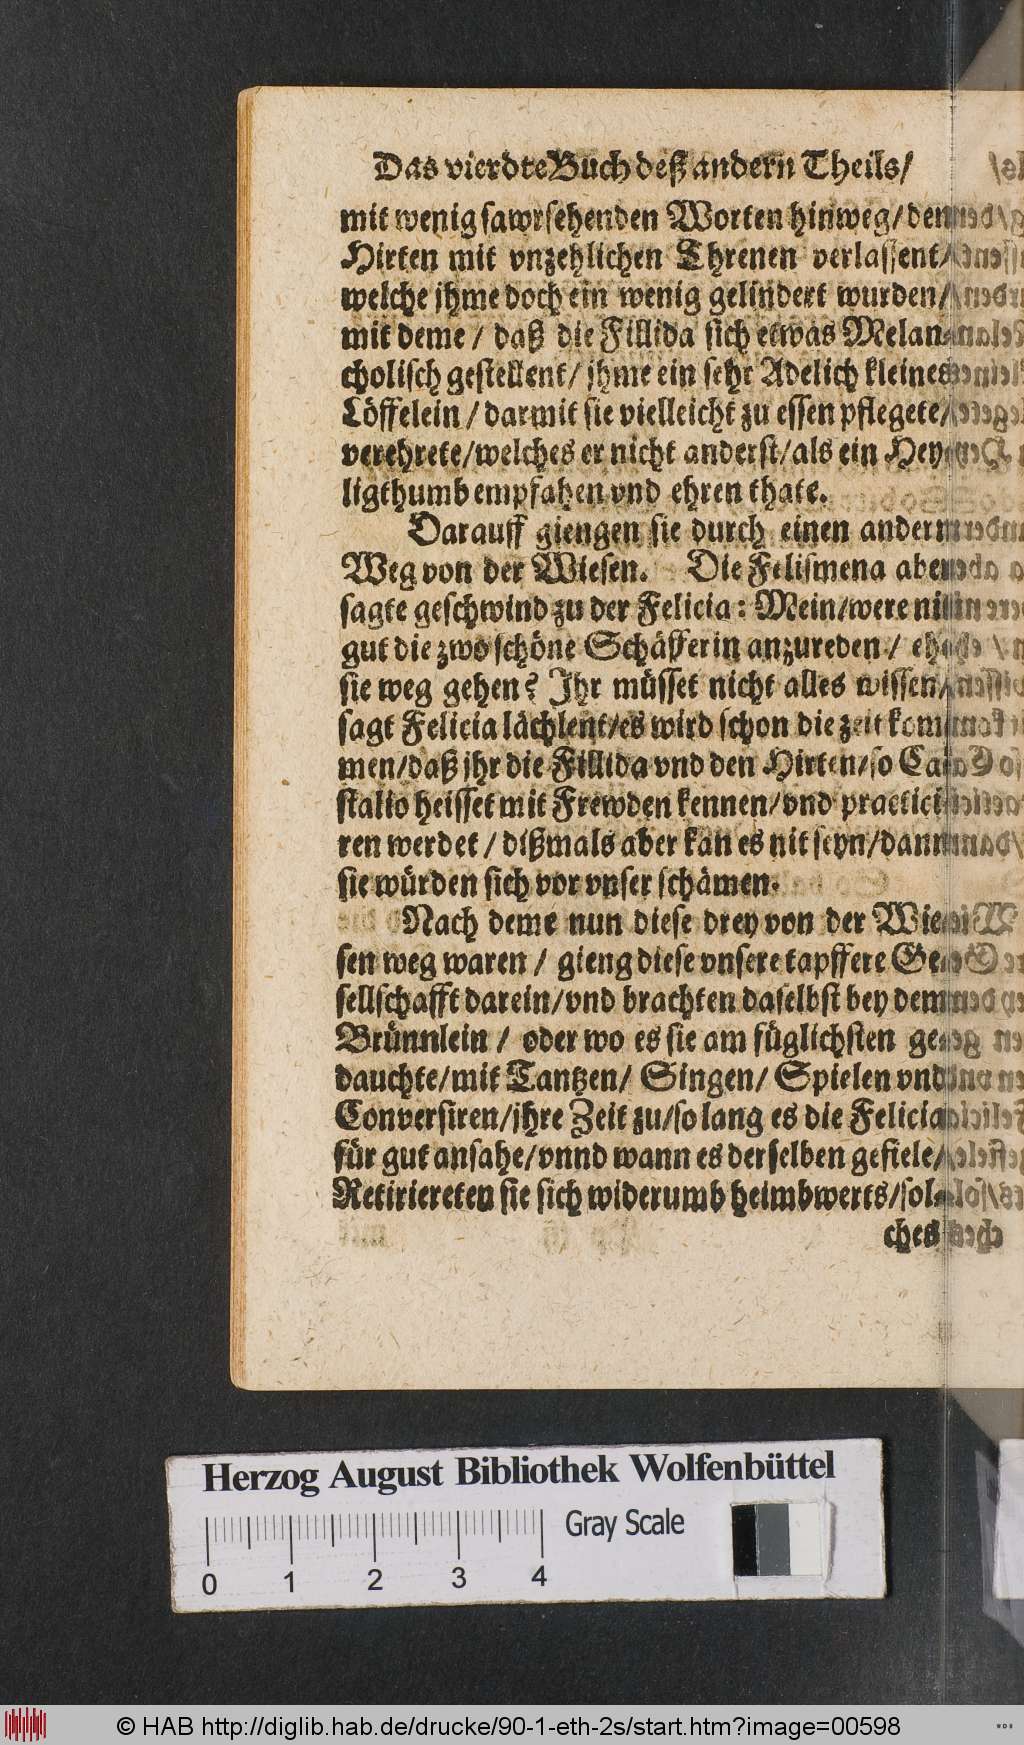 Das vierdte Buch deß andern Theils/
mit wenig sawrsehenden Worten hinweg/ den
Hirten mit vnzehlichen Threnen verlassent/
welche jhme doch ein wenig gelindert wurden/
mit deme / daß die Fillida sich etwas Melan-
cholisch gestellent/ jhme ein sehr Adelich kleines
Löffelein / darmit sie vielleicht zu essen pflegete/
verehrete/welches er nicht anderst/als ein Hey-
ligthumb empfahen vnd ehren thate.
Darauff giengen sie durch einen andern
Weg von der Wiesen. Die Felismena aber
sagte geschwind zu der Felicia: Mein/were nit
gut die zwo schöne Schäfferin anzureden / ehe
sie weg gehen? Ihr müsset nicht alles wissen/
sagt Felicia lächlent/es wird schon die zeit kom-
men/daß jhr die Fillida vnd den Hirten/so Ca-
stalio heisset mit Frewden kennen/vnd practici-
ren werdet / dißmals aber kan es nit seyn/dann
sie würden sich vor vnser schämen.
Nach deme nun diese drey von der Wie-
sen weg waren / gieng diese vnsere tapffere Ge-
sellschafft darein/vnd brachten daselbst bey dem
Brünnlein / oder wo es sie am füglichsten ge-
dauchte/mit Tantzen/ Singen/ Spielen vnd
Conversiren/jhre Zeit zu/so lang es die Felicia
für gut ansahe/vnnd wann es derselben gefiele/
Retiriereten sie sich widerumb heimbwerts/sol-
ches
Herzog August Bibliothek Wolfenbüttel
Gray Scale
0 1 2 3 4
© HAB http://diglib.hab.de/drucke/90-1-eth-2s/start.htm?image=00598